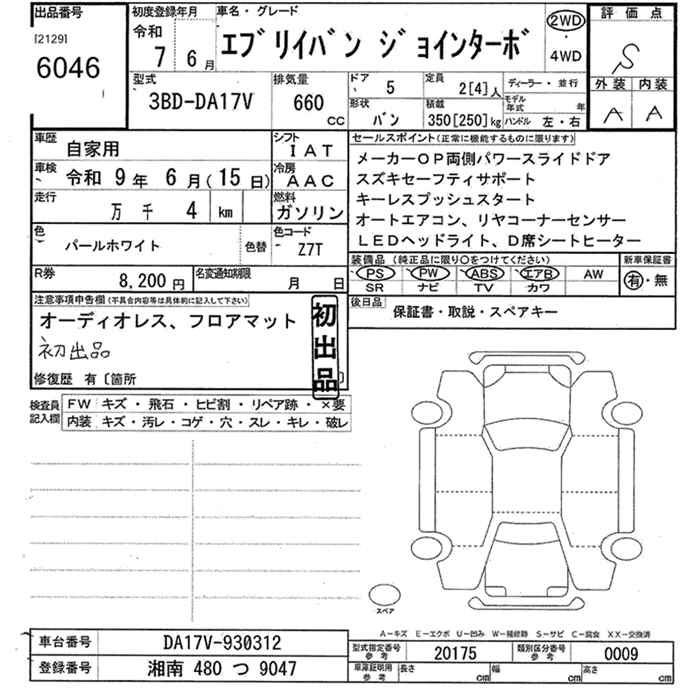 出品番号
[2129]
6046
初度登録年月
令和
7 6月
車名・グレード
エブリイバン ジョインターボ
2WD
・
4WD
評価点
S
外装 内装
A A
型式
3BD-DA17V
排気量
660
CC
ドア
5
定員
2[4]人
ディーラー・並行
形状
バン
積載
350[250]kg
モデル年式 年
ハンドル 左・右
車歴
自家用
シフト
IAT
車検
令和 9年 6月(15日)
冷房
AAC
走行
万 千 4 km
燃料
ガソリン
色
パールホワイト
色替
色コード
Z7T
R券
8,200円
名変通知期限
月 日
セールスポイント(正常に機能するものに限ります)
メーカーOP両側パワースライドドア
スズキセーフティサポート
キーレスプッシュスタート
オートエアコン、リヤコーナーセンサー
LEDヘッドライト、D席シートヒーター
装備品(純正品に限り○をつけてください)
PS PW ABS エアB AW
SR ナビ TV カワ
新車保証書
有・無
後日品
保証書・取説・スペアキー
注意事項申告欄(不具合内容等は具体的に記入して下さい)
オーディオレス、フロアマット
初出品
初出品
修復歴 有〔箇所
検査員記入欄
FW キズ・飛石・ヒビ割・リペア跡・×要
内装 キズ・汚レ・コゲ・穴・スレ・キレ・破レ
スペア
A-キズ E-エクボ U-凹み W-補修跡 S-サビ C-腐食 XX-交換済
車台番号
DA17V-930312
登録番号
湘南 480 つ 9047
型式指定番号
参考
20175
類別区分番号
参考
0009
車庫証明用
参考
長さ cm
幅 cm
高さ cm